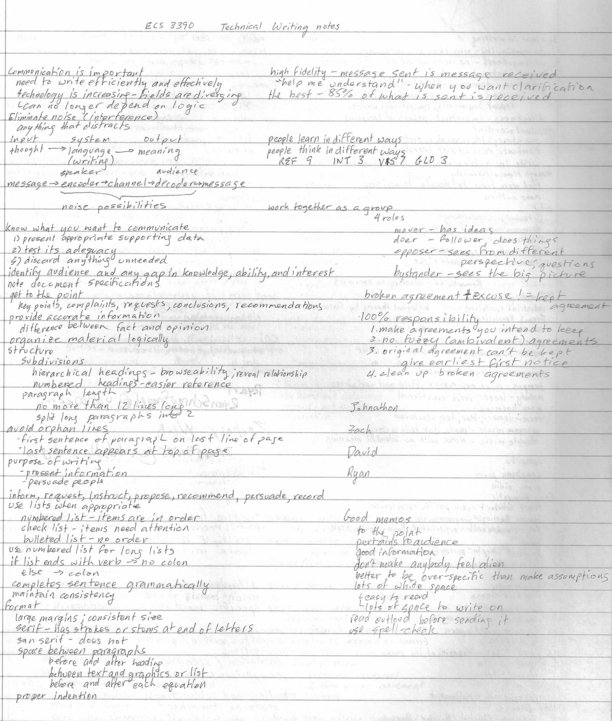 ECS 3390 Technical Writing notes
Communication is important
need to write efficiently and effectively
technology is increasing - fields are diverging
↳ can no longer depend on logic
Eliminate noise (interference)
anything that distracts
input system output
thought → language → meaning
(writing)
speaker audience
message → encoder → channel → decoder → message
noise possibilities
Know what you want to communicate
1) present appropriate supporting data
2) test its adequacy
3) discard anything unneeded
identify audience and any gap in knowledge, ability, and interest
note document specifications
get to the point
key points, complaints, requests, conclusions, recommendations
provide accurate information
difference between fact and opinion
organize material logically
structure
subdivisions
hierarchical headings - browseability, reveal relationship
numbered headings - easier reference
paragraph length
no more than 12 lines long
split long paragraphs into 2
avoid orphan lines
- first sentence of paragraph on last line of page
- last sentence appears at top of page
purpose of writing
- present information
- persuade people
inform, request, instruct, propose, recommend, persuade, record
use lists when appropriate
numbered list - items are in order
check list - items need attention
bulleted list - no order
use numbered list for long lists
if list ends with verb → no colon
else → colon
completes sentence grammatically
maintain consistency
format
large margins; consistent size
serif - has strokes or stems at end of letters
san serif - does not
space between paragraphs
before and after heading
between text and graphics or list
before and after each equation
proper indention
high fidelity - message sent is message received
"help me understand" - when you want clarification
the best - 85% of what is sent is received
people learn in different ways
people think in different ways
REF 9 INT 3 VIS 7 GLO 3
work together as a group
4 roles
mover - has ideas
doer - follower, does things
opposer - sees from different
perspective, questions
bystander - sees the big picture
broken agreement + excuse != kept
agreement
100% responsibility
1. make agreements you intend to keep
2. no fuzzy (ambivalent) agreements
3. original agreement can't be kept
give earliest first notice
4. clean up broken agreements
Johnathon
Zach
David
Ryan
Good memos
to the point
pertains to audience
good information
don't make anybody feel alien
better to be over-specific than make assumptions
lots of white space
↳ easy to read
↳ lots of space to write on
read outloud before sending it
use spell-check